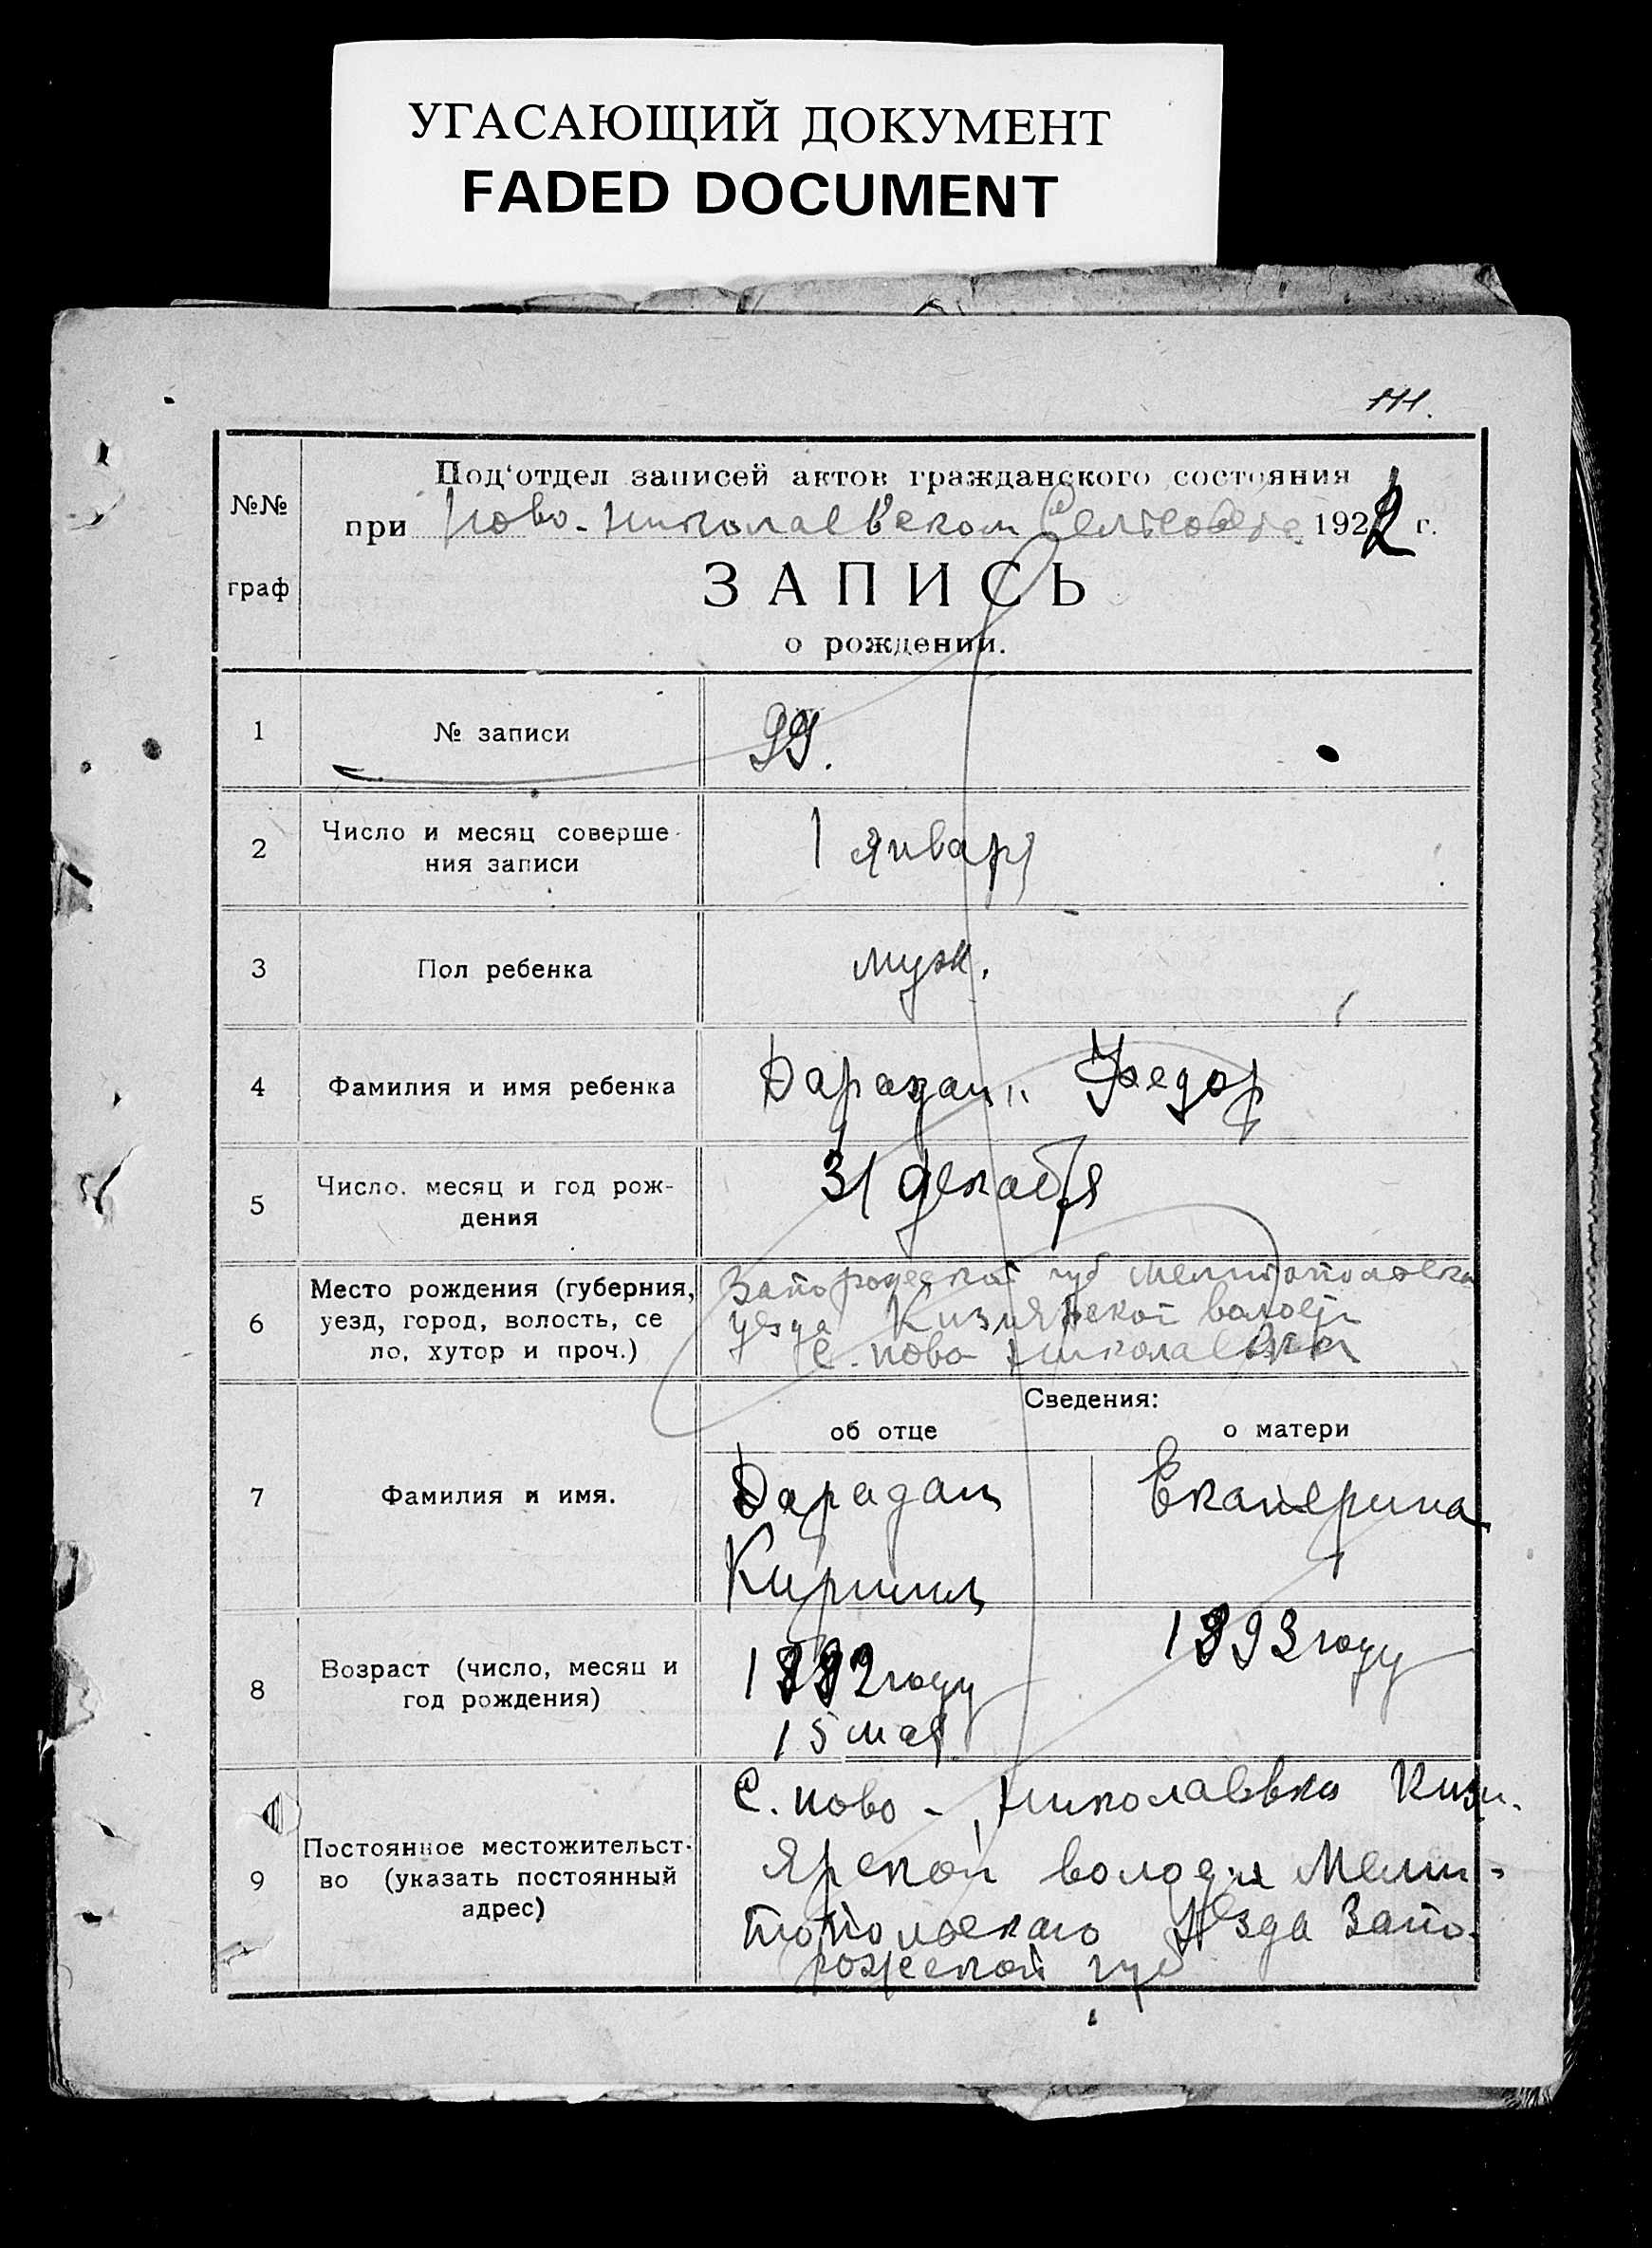 УГАСАЮЩИЙ ДОКУМЕНТ
FADED DOCUMENT
111.
№№
граф
Под'отдел записей актов гражданского состояния
при Ново-Николаевском Сельсовете 1922 г.
ЗАПИСЬ
о рождении.
1 № записи 99.
2 Число и месяц соверше-
ния записи
1 Января
3 Пол ребенка муж.
4 Фамилия и имя ребенка Дарадан Федор
5 Число. месяц и год рож-
дения
31 декабря
6 Место рождения (губерния,
уезд, город, волость, се
ло, хутор и проч.)
Запорожской губ Мелитопольска
уезда Кизиярской волости
с. ново Николаевка
Сведения:
об отце о матери
7 Фамилия и имя.
Дарадан
Кирилл
Екатерина
8 Возраст (число, месяц и
год рождения)
году
15 мая
1893 году
9 Постоянное местожительст-
во (указать постоянный
адрес)
С. ново - Николаевка Кизи-
ярской волости Мели-
топольского уезда Запо-
рожской губ